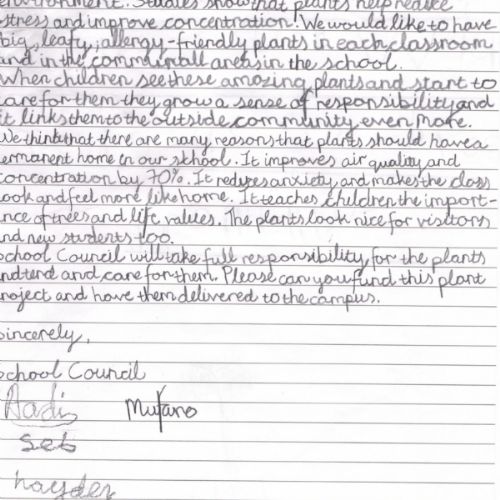 environment. Studies show that plants help reduce
stress and improve concentration! We would like to have
big, leafy, allergy-friendly plants in each classroom
and in the communall areas in the school.
When children see these amazing plants and start to
care for them they grow a sense of responsibility and
it links them to the outside community even more.
We think that there are many reasons that plants should have a
ermanent home in our skhool. It improves air quality and
concentration by 70%. It reduces anxiety and makes the class
look and feel more like home. It teaches children the import-
nce of trees and life values. The plants look nice for visitors
nd new students too.
School Council will take full responsibility for the plants
nd tend and care for them. Please can you fund this plant
roject and have them delivered to the campus.
Sincerely,
School Council
Aadi Mutano
Seb
hayden